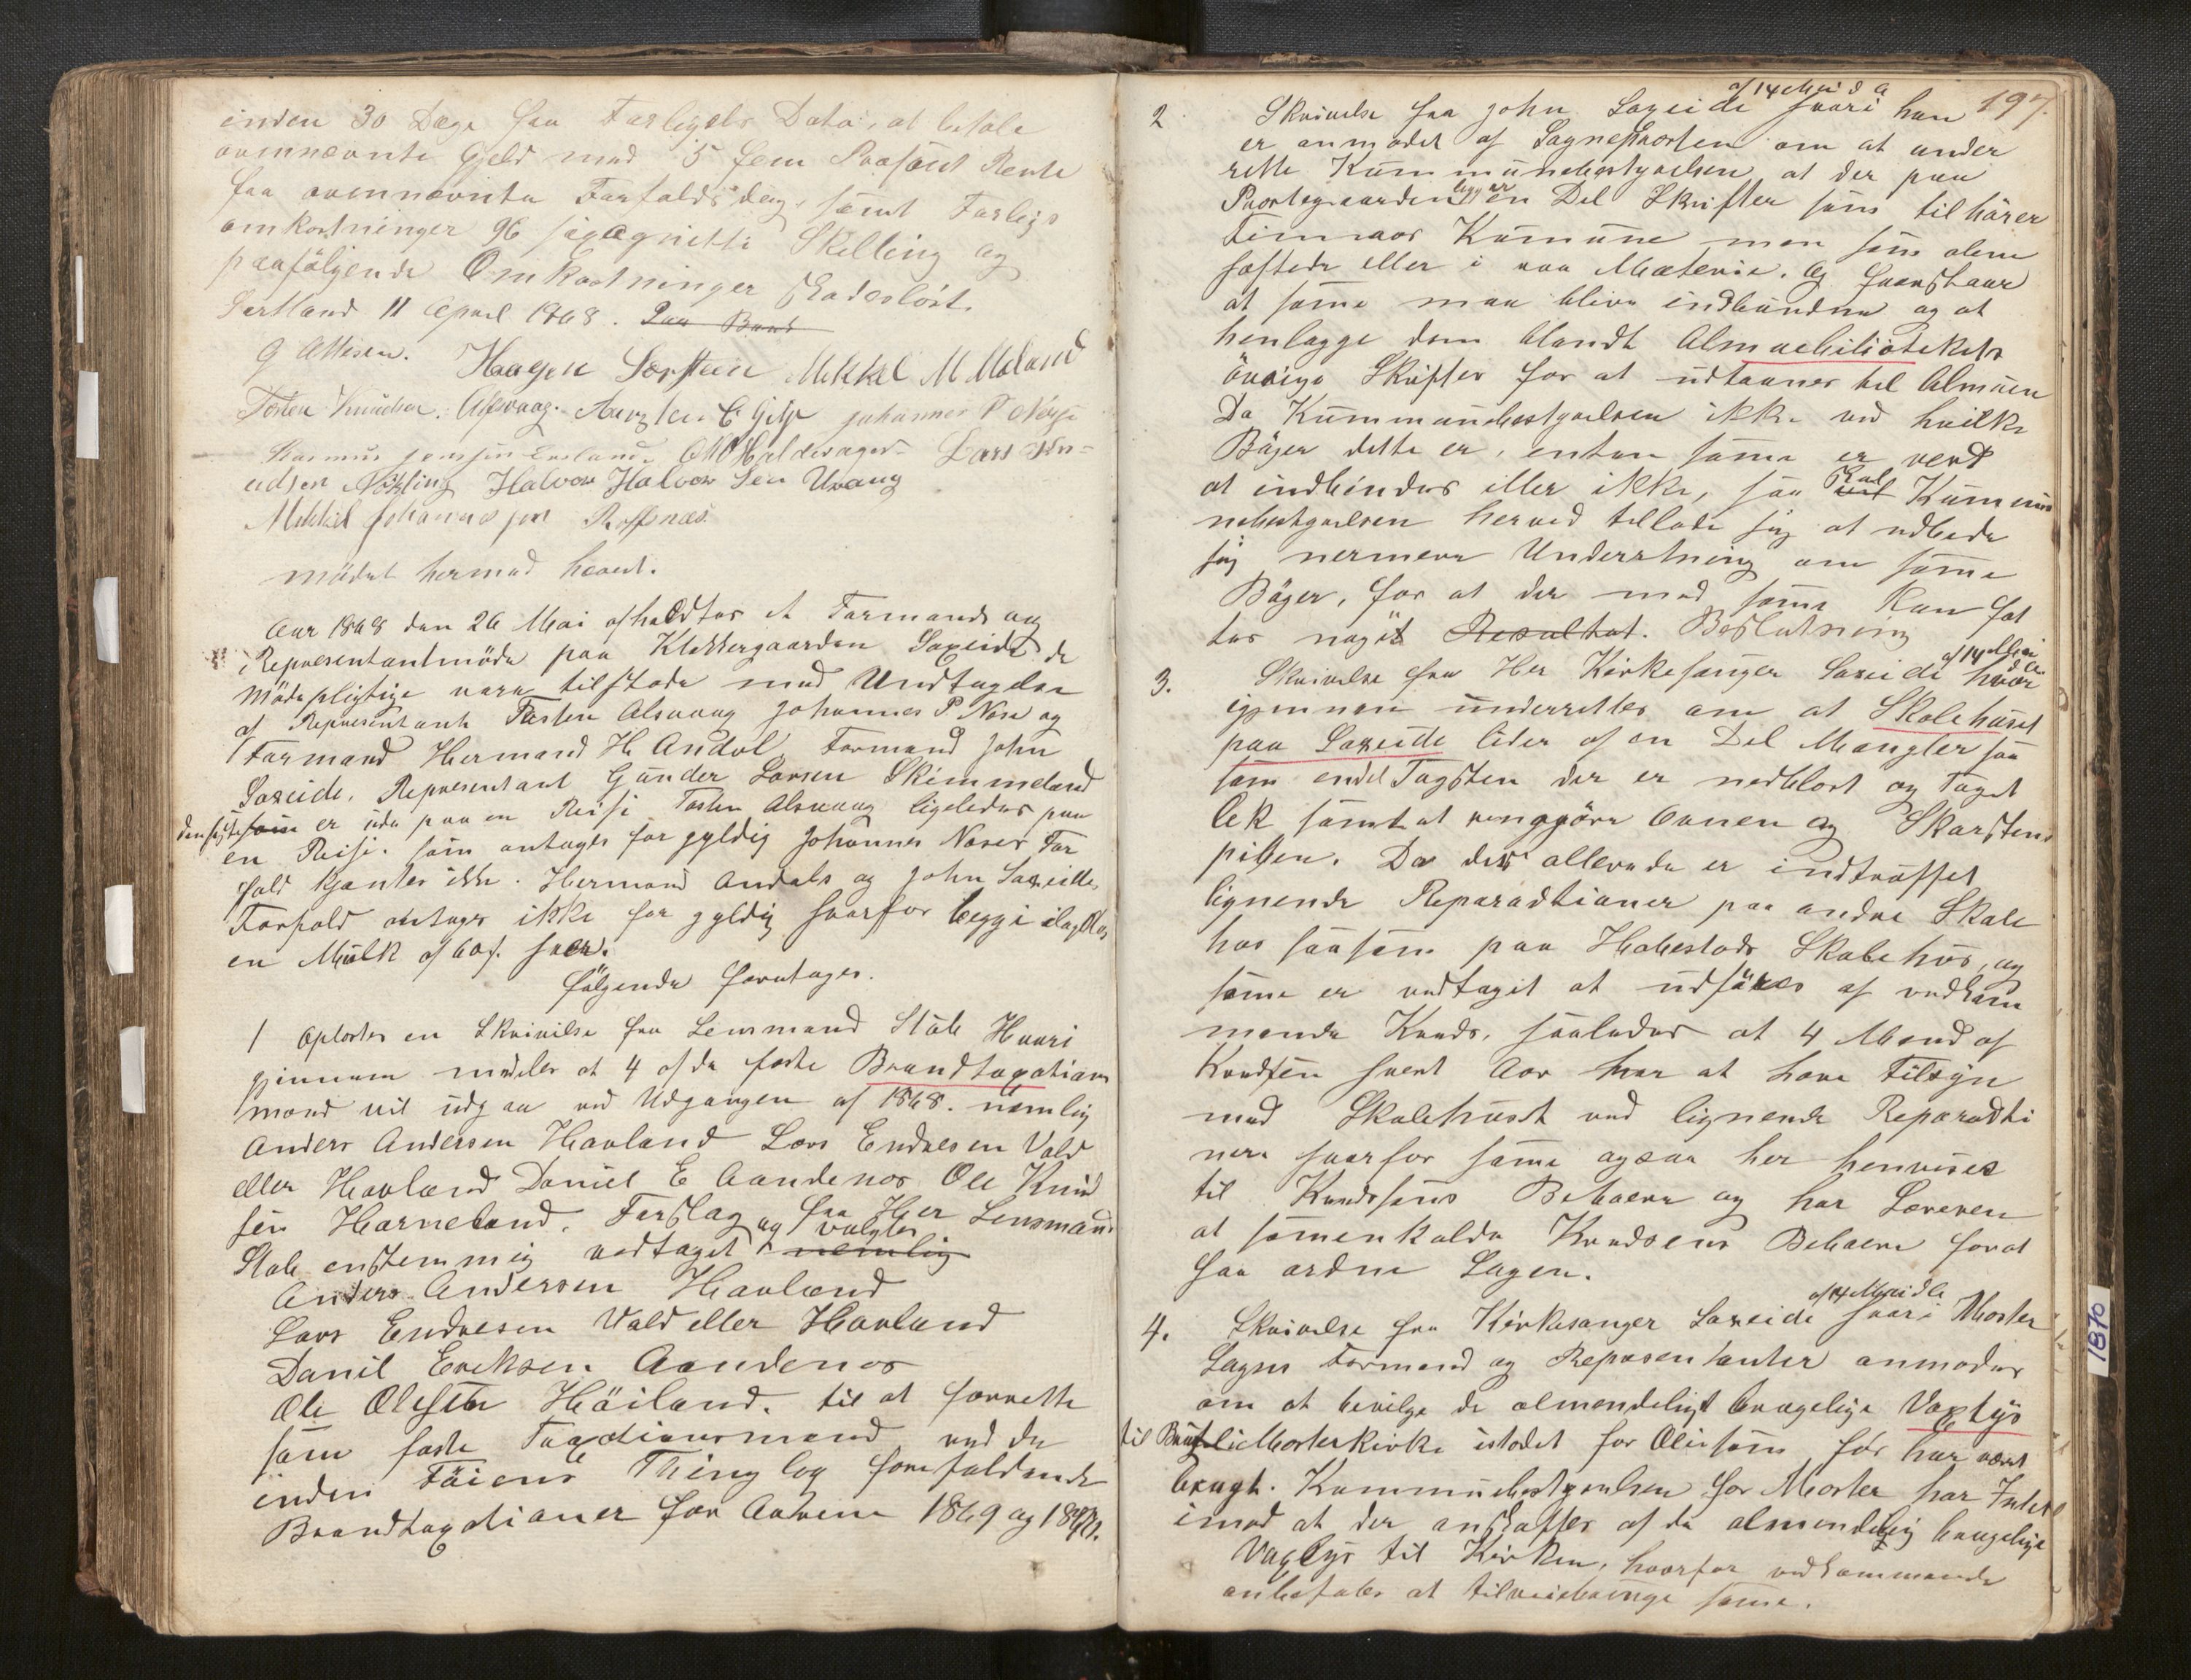 inden 30 Dage fra Forligets Dato, at betale
ovennevnte Gjeld med 5 fem Prosent Rente
fra ovennevnte Forfaldsdag, samt Forligs
omkostninger 96 sexognitti Skilling og
paafölgende Omkostninger Skadeslöst.
Sortland 11 April 1868. Paa Band
G Attesen. Haagen Sørsteen Mikkel M Mæland
Tosten Knudsen. Alsvaag. Aurgten E Gjetz Johannes P Næse
Rasmus Jensen Eneland. O M Haldorsager Lars Knu-
udsen Nökling Halvor Halvor Sen Uvaag
Mikkel Johannes sen Roffsnæs.
mödet hermed hævet.
Aar 1868 den 26 Mai afholdtes et Formands og
Repræsentantmöde paa Klokkergaarden Saxeide de
Mödepligtige vare tilstede med Undtagelse
af Representant Tosten Alsvaag Johannes P Nese og
Formand Hermand H Andal, Formand John
Saxeide. Representant Gunder Larsen Skimmeland
den sidste som er ude paa en Reise Tosten Alsvaag ligeledes paa
en Reise. som antages for gyldig Johannes Neses For
fald kjentes ikke. Hermand Andals og John Saxeides
Forfald antages ikke for gyldig hvorfor begge ilagdes
en Mulk af 60 s. hver.
fölgende foretages.
1 Oplæstes en Skrivelse fra Lensmand Stub Hvori
gjennem meddeles at 4 af de faste Brandtaxations
mend vil udgaa ved Udgangen af 1868. nemlig
Anders Andersen Havland Lars Endresen Vald
eller Havland Daniel E Aandenes Ole Knud
sen Horneland. Forslag fra Her Lensmand
Stub enstemmig vedtaget og valgtes nemlig
Anders Andersen Havland
Lars Endresen Vald eller Havland
Danil Eriksen Aandenes
Ole Olesen Höiland. til at forrette
som faste Taxtionsmend ved de
inden Föiens Thinglag forefaldende
Brandtaxstianer for Aarene 1869 og 1870.
197.
2 Skrivelse fra John Saxeide af 14 Mai d A hvori han
er anmodet af Sogneprosten om at under
rette Kummunebestyrelsen at der paa
Prostegaarden ligger en Del Skrifter som tilhörer
Finnaas Kumune men som alene
heftede eller i raa Materie. Og foreslaar
at same maa blive indbundne og at
henlægge dem blandt Almuebibliotekets
övrige Skrifter for at udlaanes til Almuen
Da Kummunebestyrelsen ikke ved hvilke
Böger dette er, enten same er verd
at indbindes eller ikke, saa skal Kummu
nebestyrelsen herved tillade sig at udbede
sig nermere Underretning om same
Böger, for at der med same kan fat
tes noget Resultat. Beslutning
3. Skrivelse fra Her Kirkesanger Saxeide af 14 Mai d A hvor
igjennem underrettes om at Skolehuset
paa Saxeide lider af en Del Mangler saa
som endel Tagsten der er nedblest og Taget
lek samt at rengjöre Ovnen og Skorstens
piben. Da der allerede er indtruffet
lignende Reparadtianer paa andre Skole
hus saasom paa Hobestads Skolehus, og
same er vedtaget at udföres af vedkom
mende Kreds, saaledes at 4 Mend af
Kredsen hvert Aar har at have Tilsyn
med Skolehuset ved lignende Reparadti
ner hvorfor same ogsaa her henvises
til Kredsens Beboere og har Læreren
at samenkalde Kredsens Beboere for at
faa ordne Sagen.
4. Skrivelse fra Kirkesanger Saxeide af 14 Mai d A hvori Moster
Sogns Formend og Repræsentanter anmodes
om at bevilge de almendeligt brugelige Voxlys
til Brug i Mosterkirke istedet for Olie som för har været
brugt. Kummunebestyrelsen for Moster har Intet
imod at der anskaffes af de almendelig brugelige
Voxlys til Kirken, hvorfor vedkommende
anbefales at tilveiebringe same.
1870